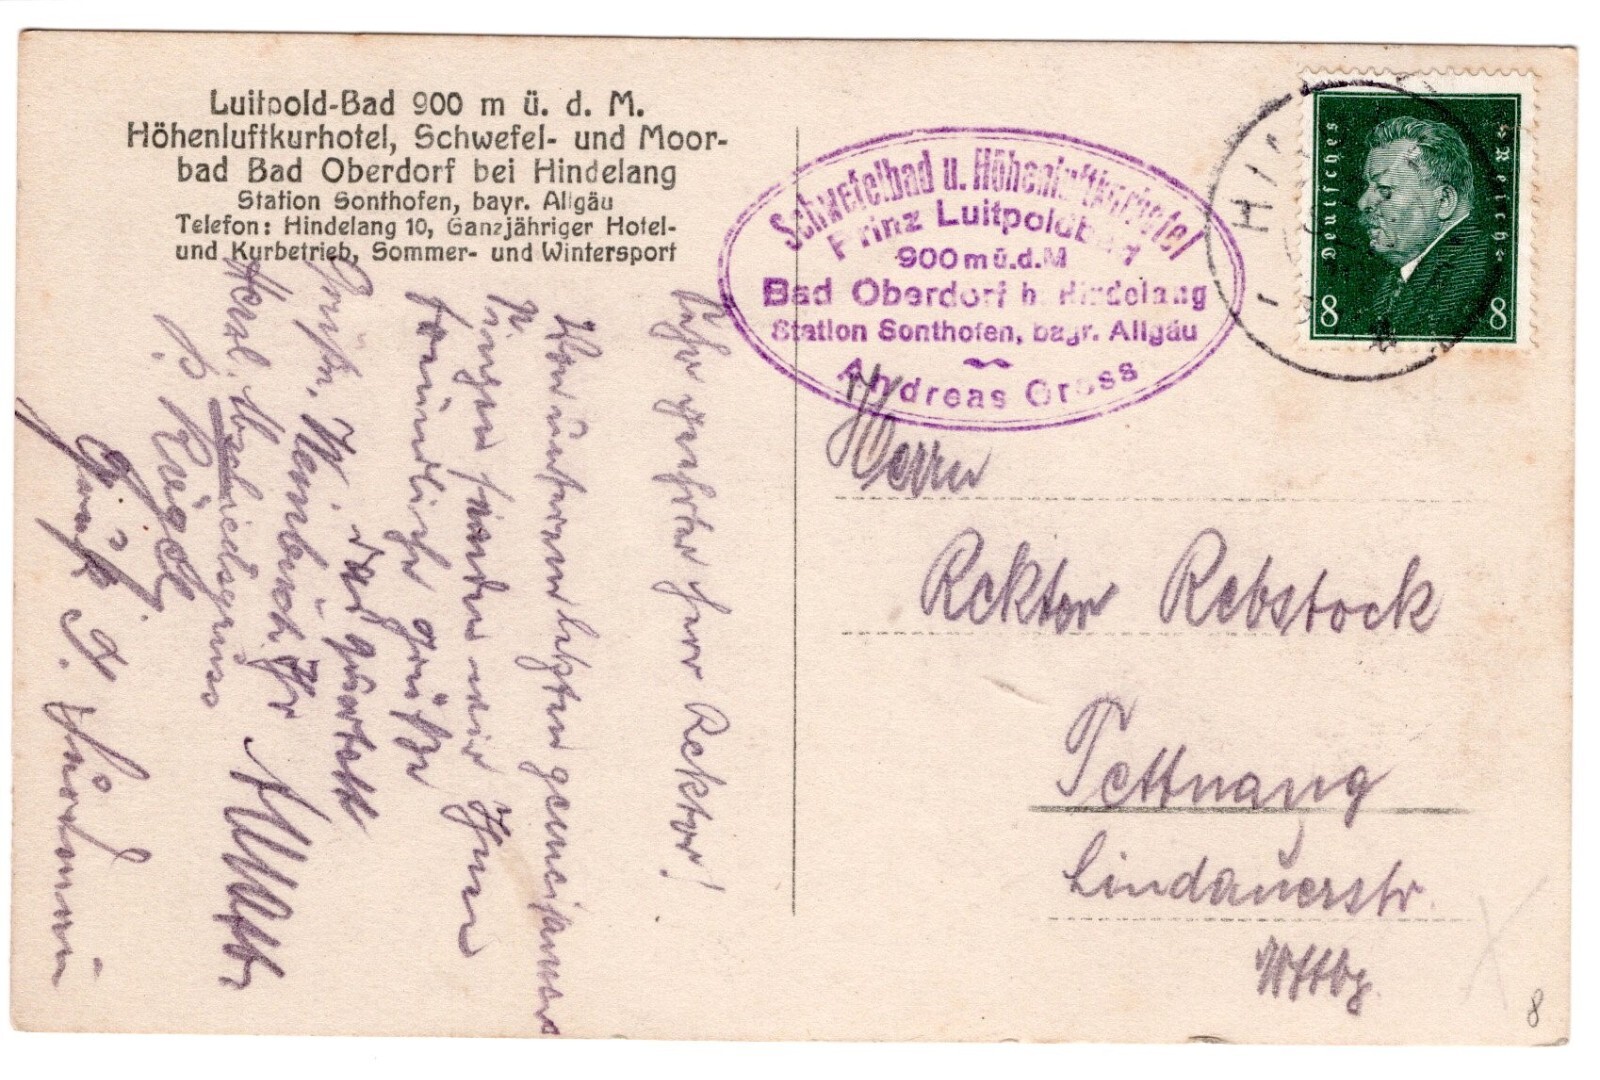 Luitpold-Bad 900 m ü. d. M.
Höhenluftkurhotel, Schwefel- und Moor-
bad Bad Oberdorf bei Hindelang
Station Sonthofen, bayr. Allgäu
Telefon: Hindelang 10, Ganzjähriger Hotel-
und Kurbetrieb, Sommer- und Wintersport
Schwefelbad u. Höhenluftkurhotel
Prinz Luitpoldbad
900 m ü. d. M
Bad Oberdorf b. Hindelang
Station Sonthofen, bayr. Allgäu
Andreas Gross
Deutsches Reich
8 8
Sehr geehrter Herr Rektor!
Von unserem letzten gemeinsamen
senden wir Ihnen
freundliche Grüße
Ihr
Herzl. Abschiedsgruss
Gruß
Herrn
Rektor Rebstock
Tettnang
Lindauerstr.
Wttbg.
8